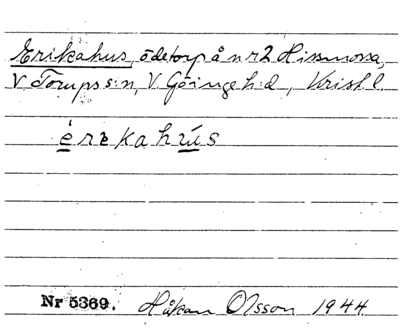 Erikahus, ödetorp å nr 2 Hissmossa,
V Torups s:n, V. Göinge h:d, Krist. l.
èrɩkahús
Nr 5369. Håkan Olsson 1944.